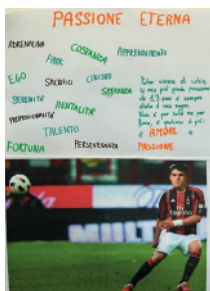 PASSIONE ETERNA
ADRENALINA
COSTANZA
APPRENDIMENTO
FAME
EGO
SACRIFICI
CINISMO
SPERANZA
SERENITA'
MENTALITA'
PROFESSIONALITA'
TALENTO
FORTUNA
PERSEVERANZA
PASSIONE
Poter vivere di calcio,
la mia più grande passione
è sempre
stato il mio sogno.
Non è per soldi ne per
fama, è qualcosa di più:
è AMORE e